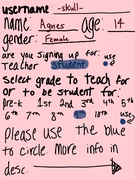 username -skull-
name: Agnes age: 14
gender: Female
are you signing up for: use
teacher student
select grade to teach for
or to be student for:
pre-k 1st 2nd 3rd 4th 5th
6th 7th 8th use
Please use the blue
to circle. more info in
desc.